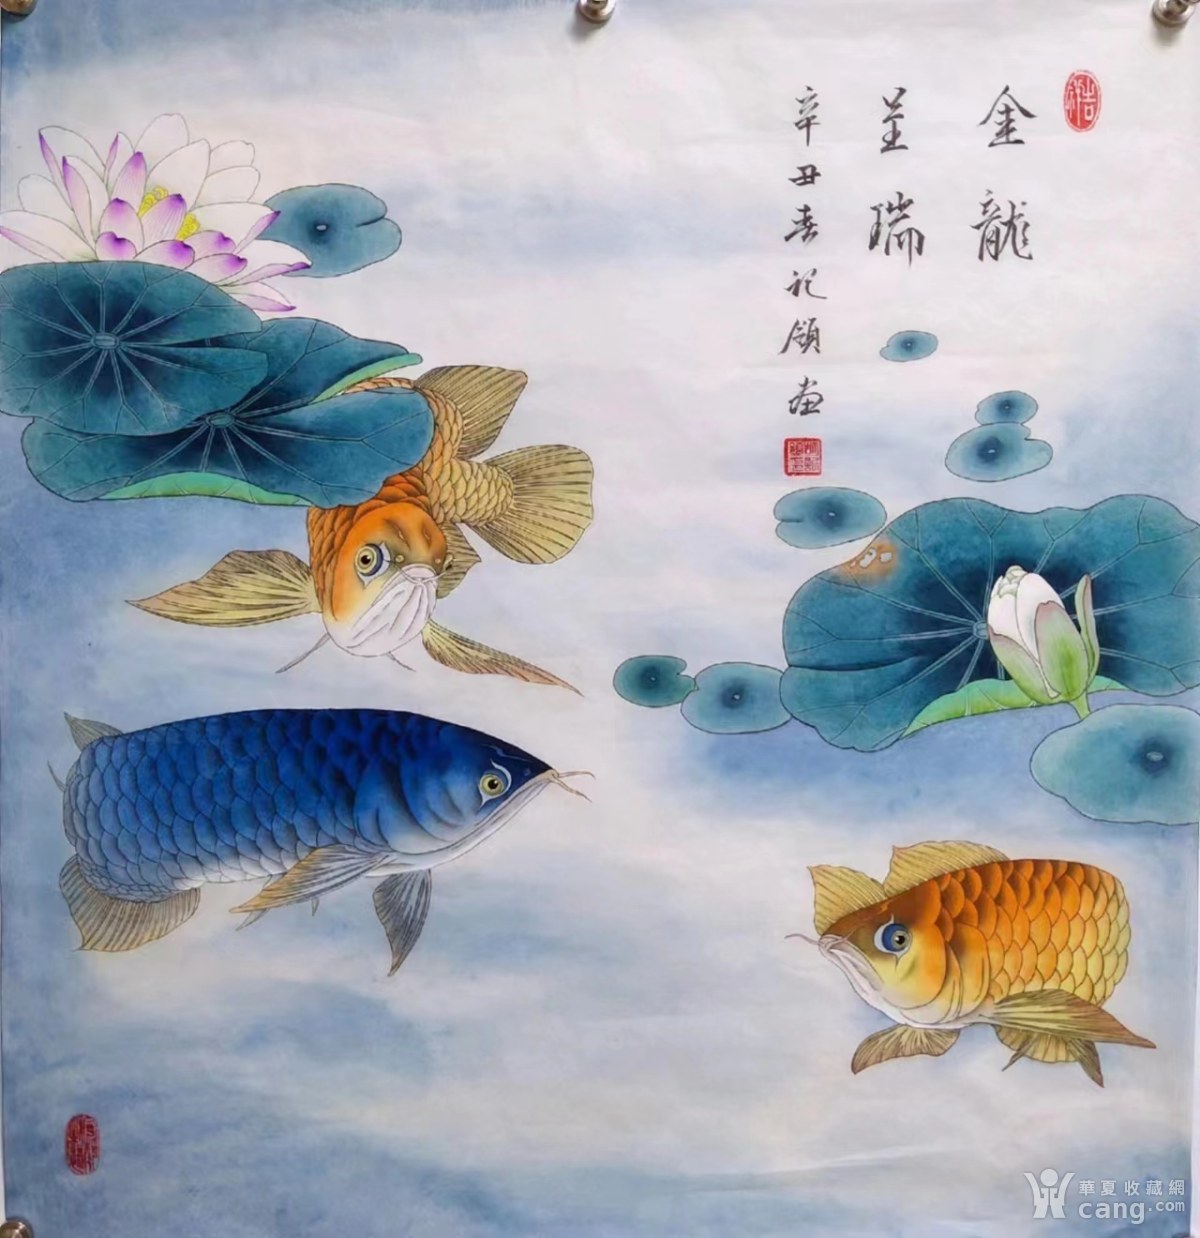 金龍
呈瑞
辛丑春祀領畫
吉祥
華夏收藏網
cang.com